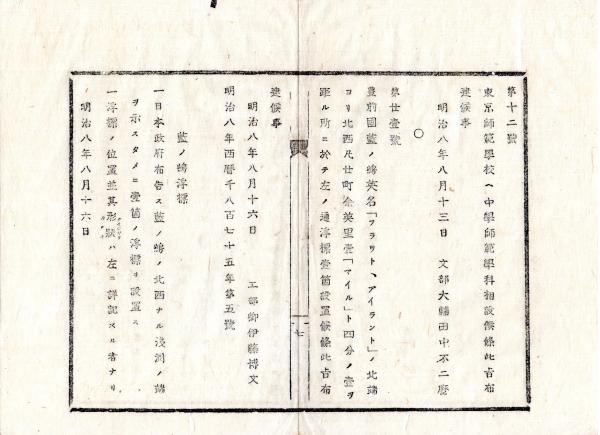 第十二號
東京師範學校ヘ中學師範學科相設候條此旨布
達候事
明治八年八月十三日 文部大輔田中不二麿
○
第廿壹號
豊前國藍ノ嶋英名「フラツト、アイランド」ノ北端
ヨリ北西凡廿町余英里壹「マイル」ト四分ノ壹ヲ
距ル所ニ於テ左ノ通浮標壹箇設置候條此旨布
達候事
明治八年八月十六日 工部卿伊藤博文
明治八年西暦千八百七十五年第五號
藍ノ嶋浮標
一日本政府布告ス藍ノ嶋ノ北西ナル淺洲ノ端
ヲ示スタメニ壹箇ノ浮標ヲ設置ス
一浮標ノ位置並其形狀ハ左ニ詳記スル者ナリ
明治八年八月十六日